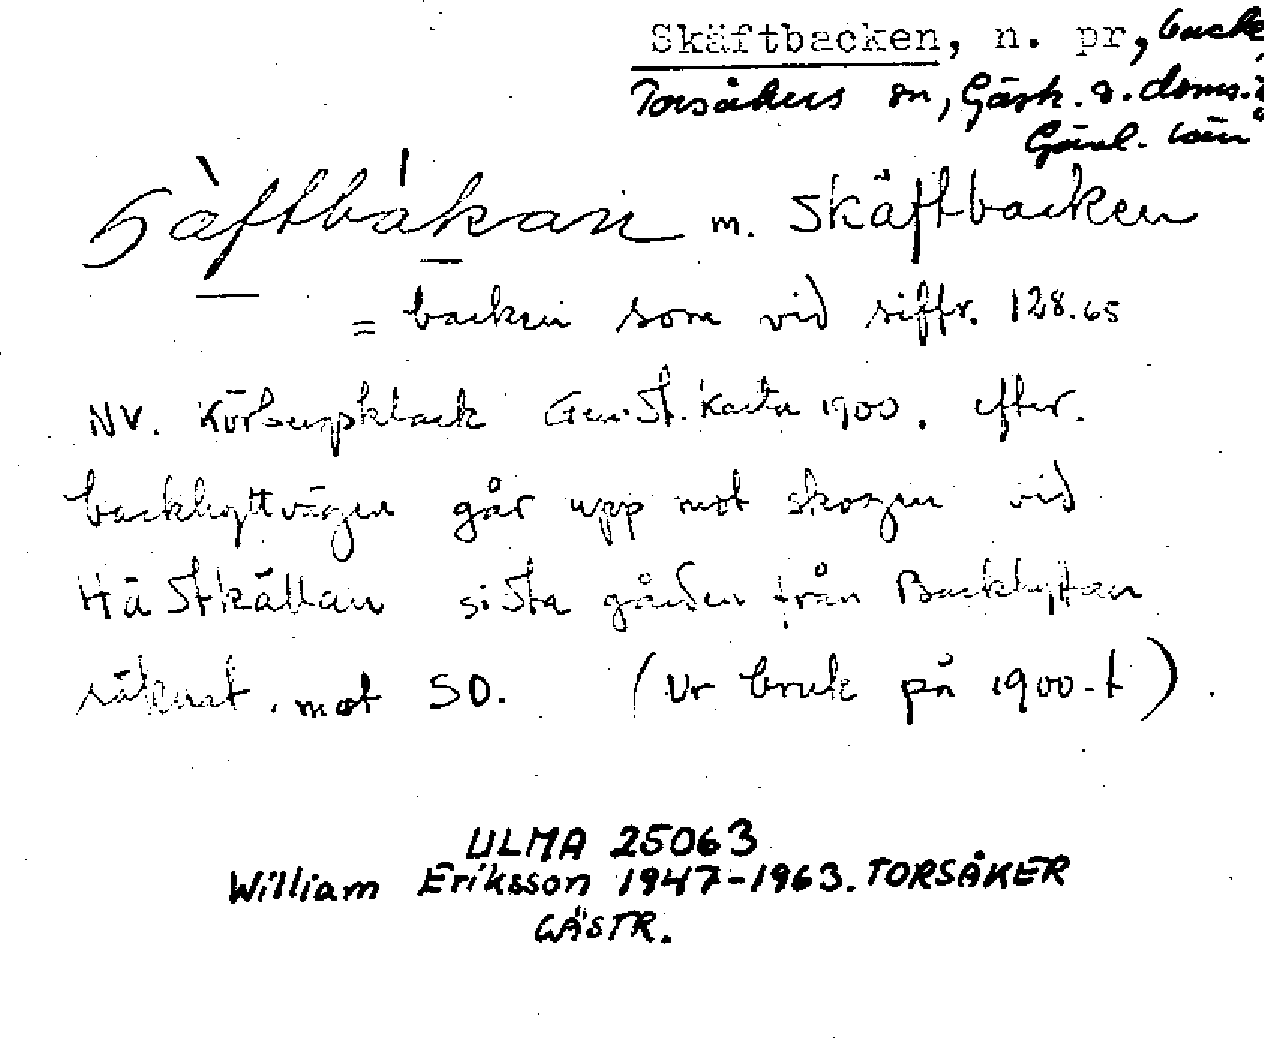 Skäftbacken, n. pr, backe,
Torsåkers sn, Gästr. ö. doms.
Gävl. län
m. Skäftbacken
= backen som vid siffr. 128.65
NV. Körbergsklack Gen.St. Karta 1900. efter.
backhyttvägen går upp mot skogen vid
Hästkällan sista gården från Backhyttan
räknat. mot SO. (Ur bruk på 1900-t).
ULMA 25063
William Eriksson 1947-1963. TORSÅKER
GÄSTR.